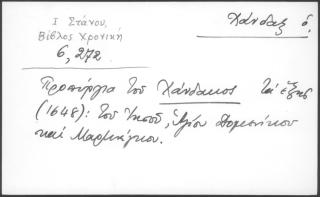 Ι Στάνου,
Βίβλος Χρονική
6, 272
Χάνδαξ ὁ.
Προπύργια τοῦ Χάνδακος τά ἑξῆς
(1648): τοῦ Ἰησοῦ, Ἁγίου Δομενίκου
καί Μαρτινέγκου.